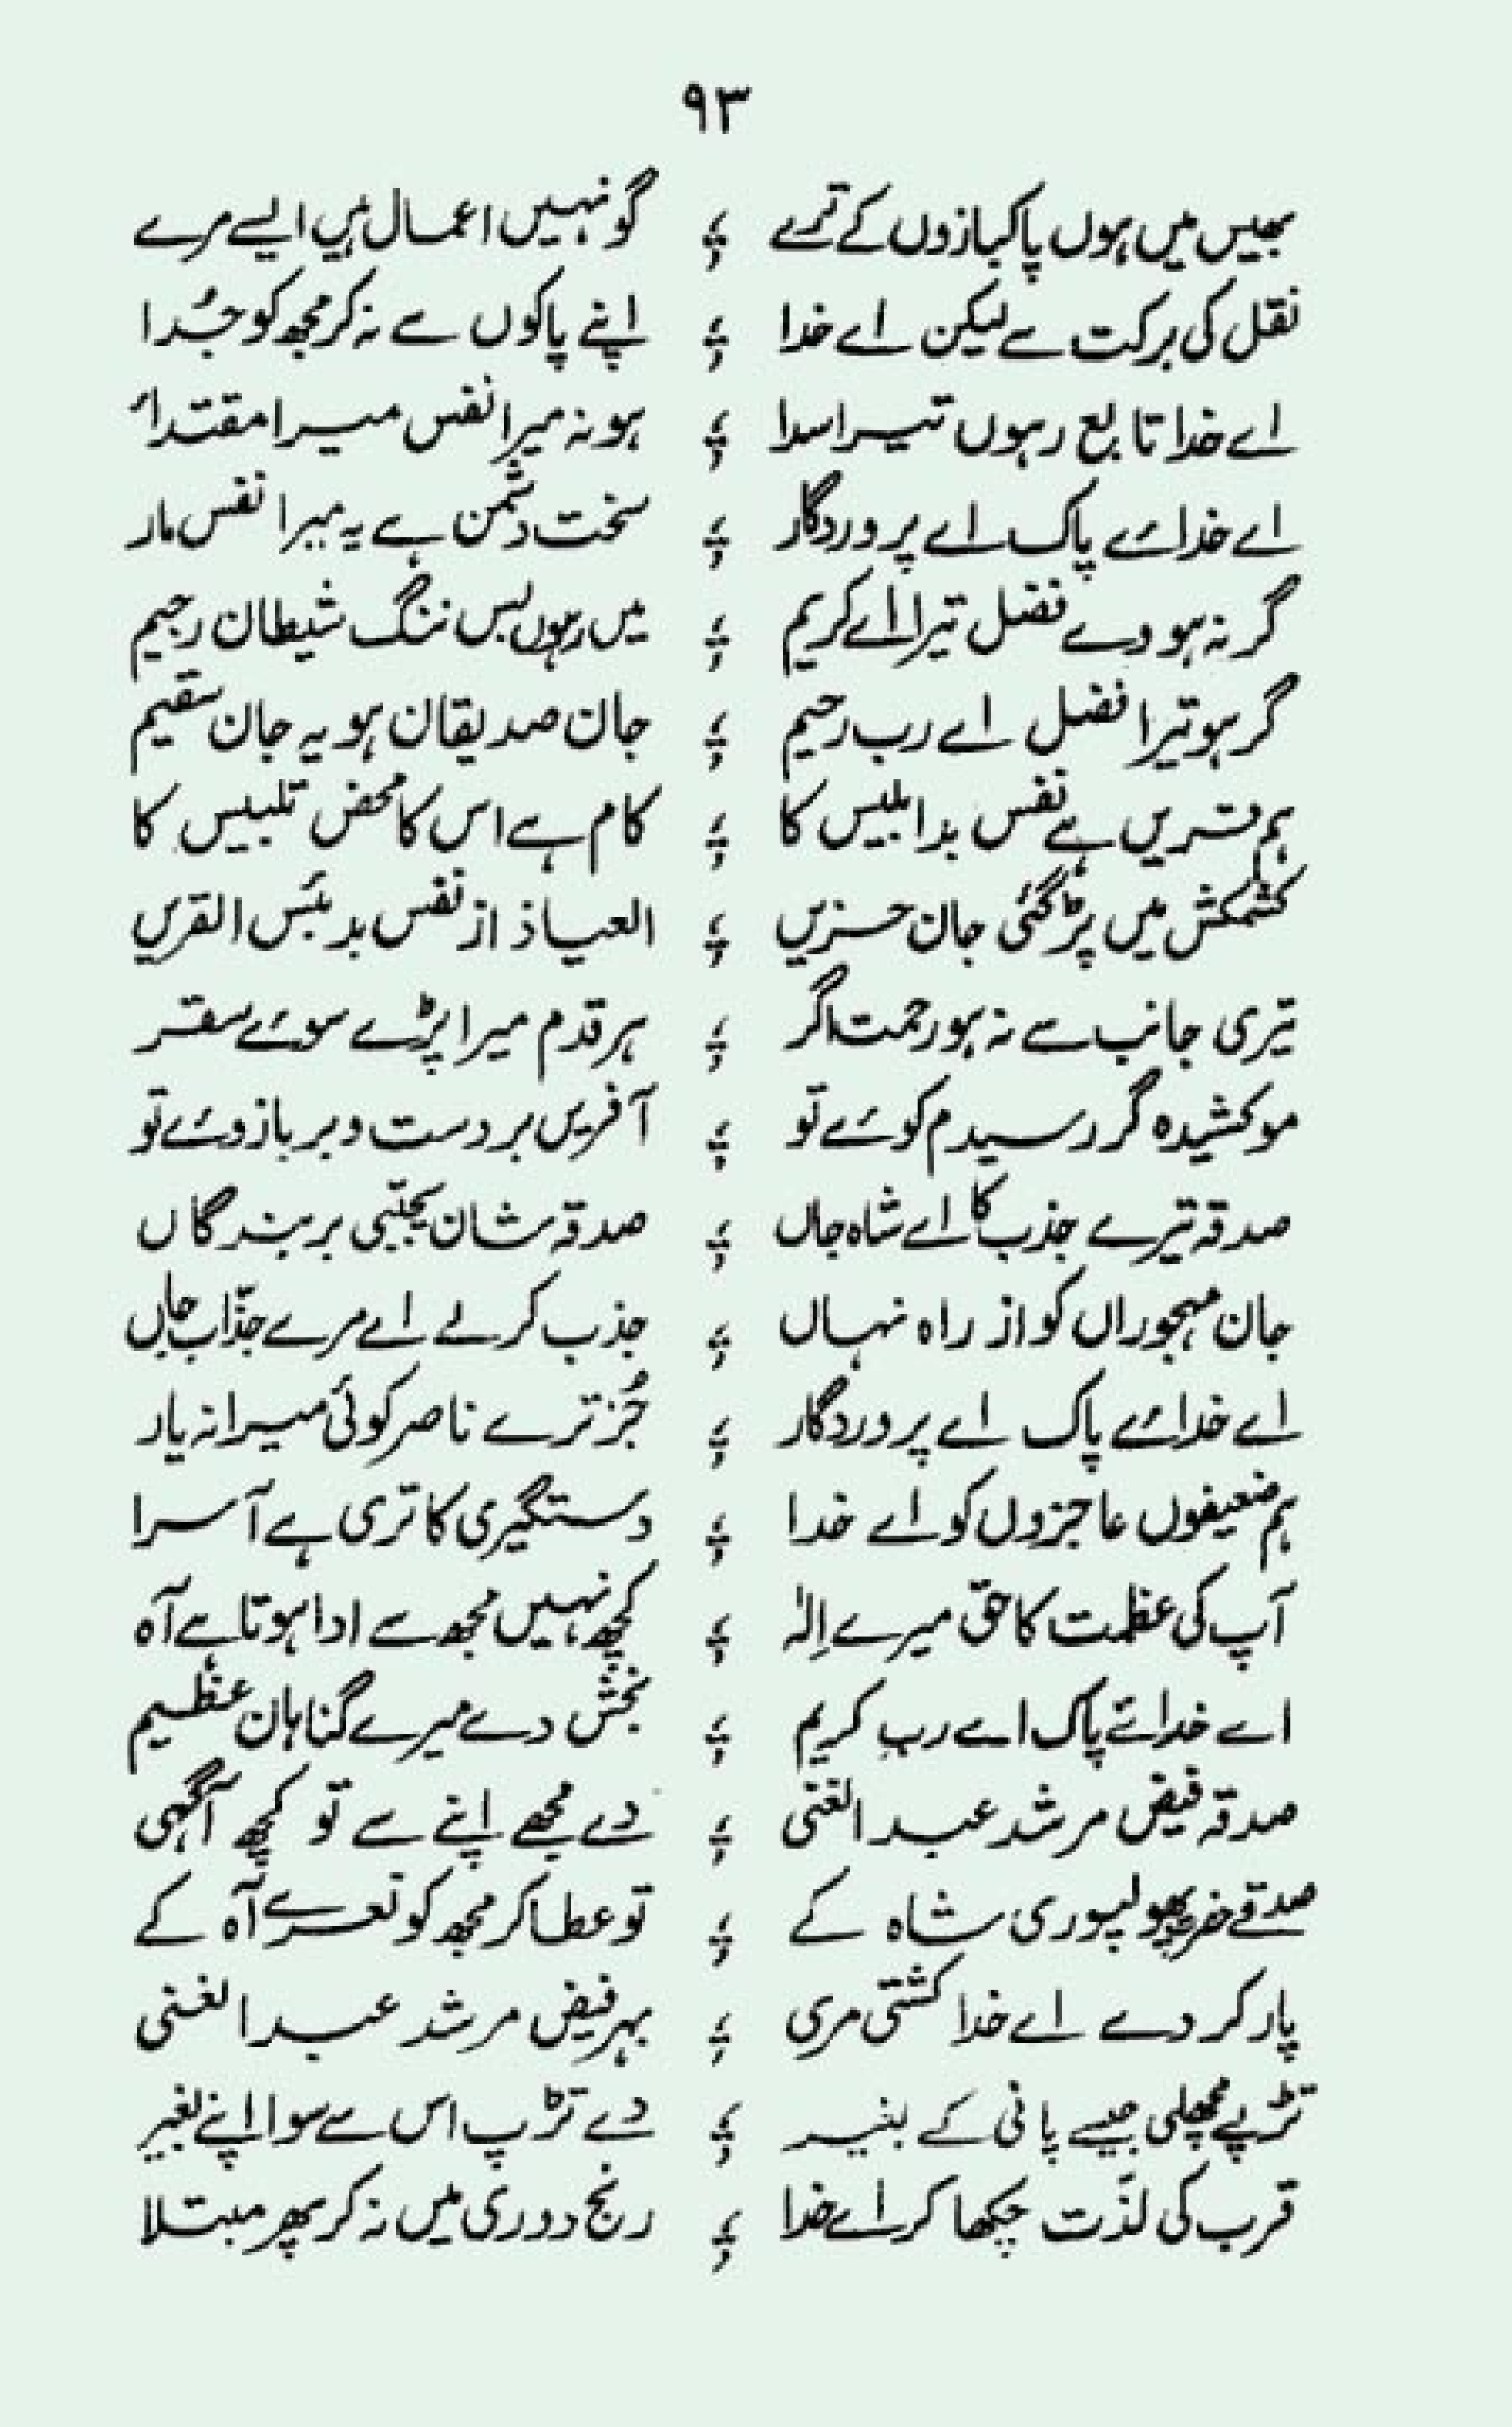 ۹۳
بھیس میں ہوں پاکبازوں کے ترے ؛ گو نہیں اعمال ہیں ایسے مرے
نقل کی برکت سے لیکن اے خدا ؛ اپنے پاکوں سے نہ کر مجھ کو جُدا
اے خدا تابع رہوں تیرا سدا ؛ ہو نہ میرا نفس میرا مقتداء
اے خدائے پاک اے پروردگار ؛ سخت دشمن ہے یہ میرا نفس مار
گر نہ ہووے فضل تیرا اے کریم ؛ میں رہوں بس ننگ شیطان رجیم
گر ہو تیرا فضل اے رب رحیم ؛ جان صدیقان ہو یہ جان سقیم
ہم قریں ہے نفس بد ابلیس کا ؛ کام ہے اس کا محض تلبیس کا
کشمکش میں پڑ گئی جان حزیں ؛ العیاذ از نفس بد بئس القریں
تیری جانب سے نہ ہو رحمت اگر ؛ ہر قدم میرا پڑے سوئے سقر
موکشیدہ گر رسیدم کوئے تو ؛ آفریں بر دست و بر بازوئے تو
صدقہ تیرے جذب کا اے شاہ جاں ؛ صدقہ شان یجتبی بر بندگاں
جان مہجوراں کو از راہ نہاں ؛ جذب کرلے اے مرے جذّاب جاں
اے خدائے پاک اے پروردگار ؛ جُز ترے ناصر کوئی میرا نہ یار
ہم ضعیفوں عاجزوں کو اے خدا ؛ دستگیری کا تری ہے آسرا
آپ کی عظمت کا حق میرے اِلٰہ ؛ کچھ نہیں مجھ سے ادا ہوتا ہے آہ
اے خدائے پاک اے رب کریم ؛ بخش دے میرے گناہان عظیم
صدقہ فیض مرشد عبد الغنی ؛ دے مجھے اپنے سے تو کچھ آگہی
صدقے حضرت پھولپوری شاہ کے ؛ تو عطا کر مجھ کو نعرے آہ کے
پار کر دے اے خدا کشتی مری ؛ بہر فیض مرشد عبد الغنی
تڑپے مچھلی جیسے پانی کے بغیر ؛ دے تڑپ اس سے سوا اپنے بغیر
قرب کی لذّت چکھا کر اے خدا ؛ رنج دوری میں نہ کر پھر مبتلا